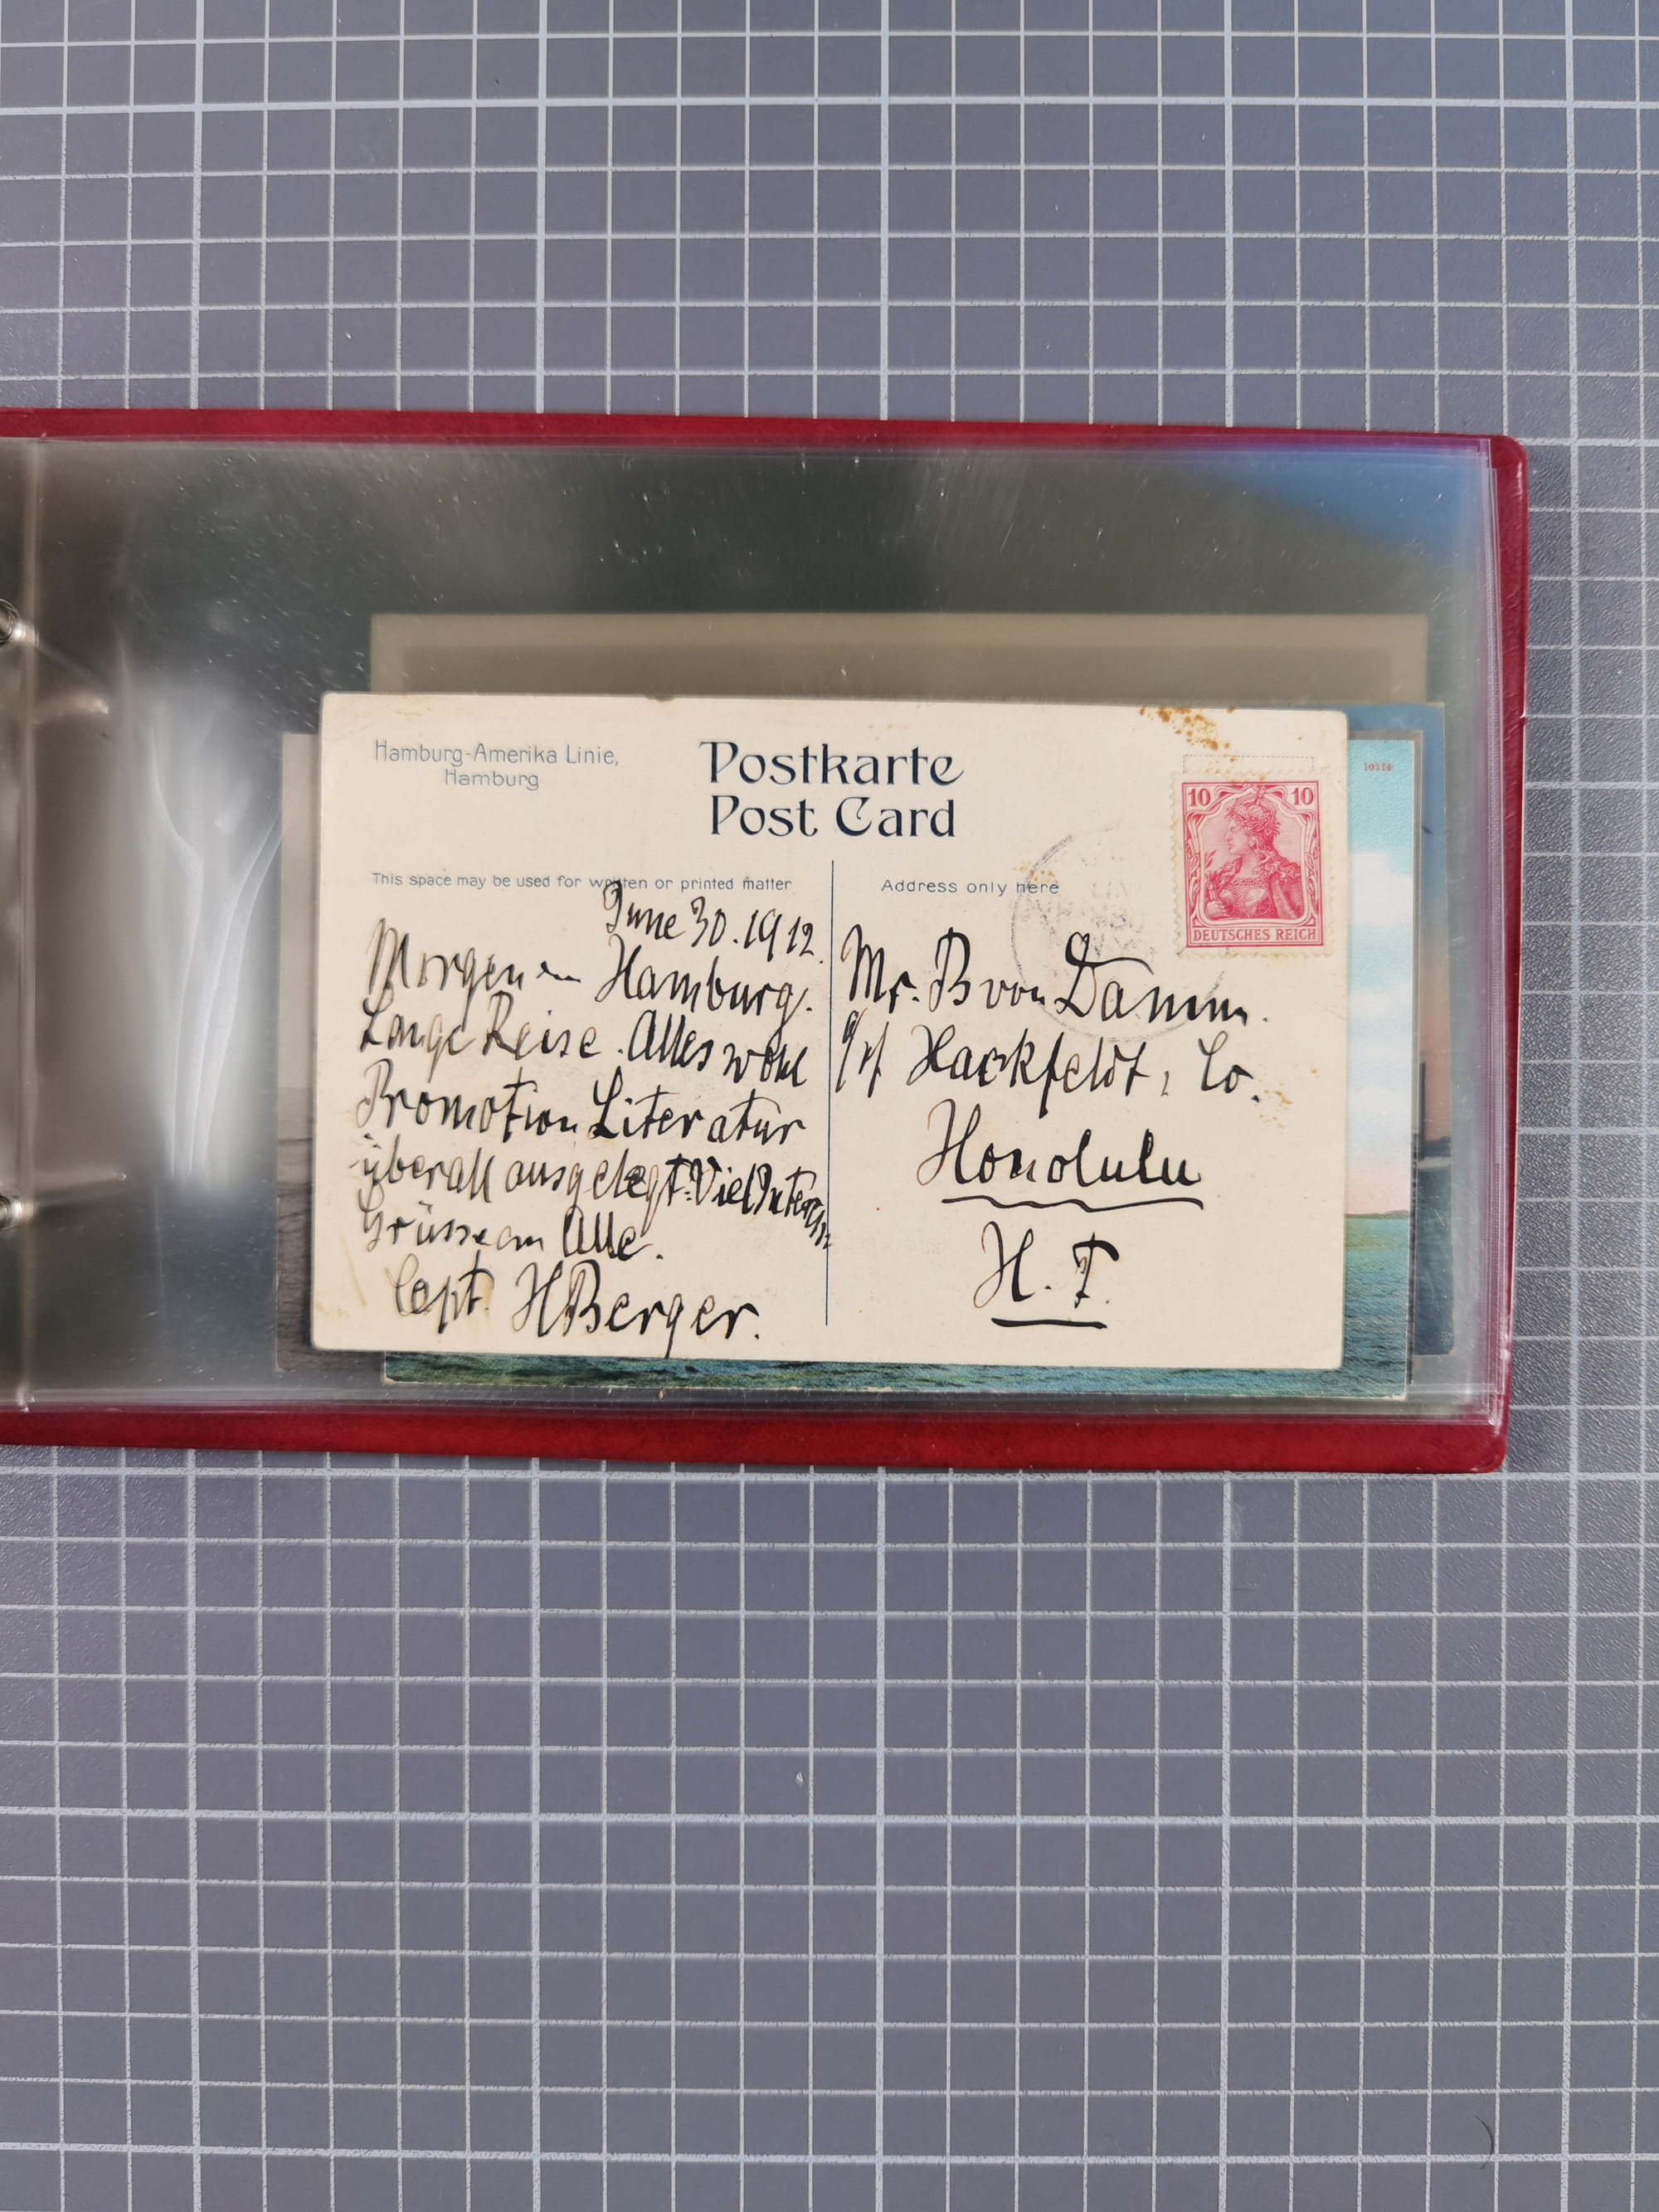 Hamburg-Amerika Linie,
Hamburg
Postkarte
Post Card
This space may be used for written or printed matter
Address only here
10 10
DEUTSCHES REICH
10114
June 30. 1912.
Morgen in Hamburg.
Lange Reise. Alles wohl
Promotion Literatur
überall ausgelegt. Viel
Grüsse an Alle.
Capt. H Berger.
Mr. B von Damm.
Hackfeldt, Co.
Honolulu
H. T.